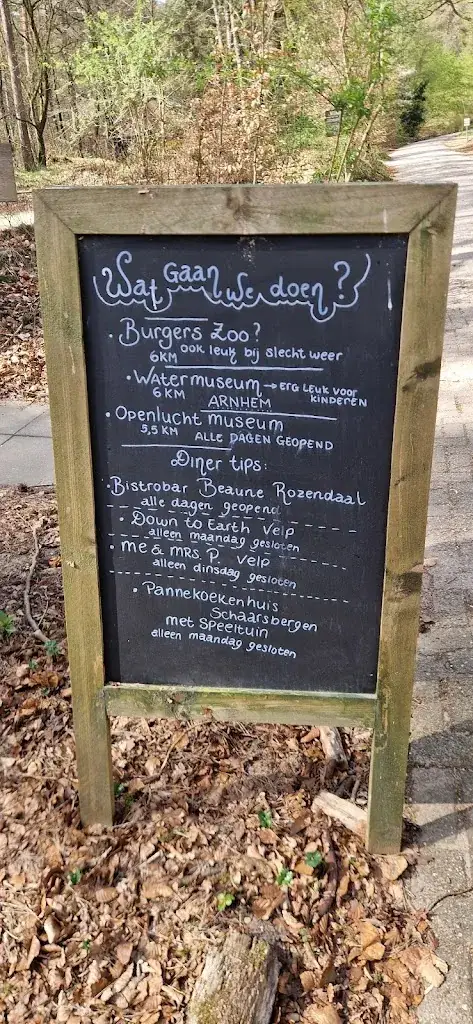 Wat gaan we doen?
• Burgers Zoo?
6KM ook leuk bij slecht weer
• Watermuseum → ERG LEUK VOOR
6 KM ARNHEM KINDEREN
• Openlucht museum
5,5 KM ALLE DAGEN GEOPEND
Diner tips:
• Bistrobar Beaune Rozendaal
alle dagen geopend
• Down to Earth Velp
alleen maandag gesloten
• ME & MRS. P. Velp
alleen dinsdag gesloten
• Pannekoekenhuis
Schaarsbergen
met Speeltuin
alleen maandag gesloten